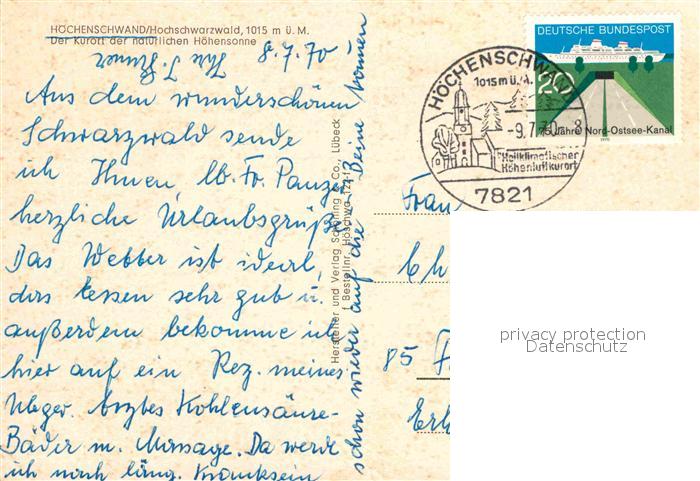 HÖCHENSCHWAND/Hochschwarzwald, 1015 m ü. M.
Der Kurort der natürlichen Höhensonne
8.7.70
Aus dem wunderschönen
Schwarzwald sende
ich Ihnen, lb. Fr. Panzer
herzliche Urlaubsgrüße
Das Wetter ist ideal,
das Essen sehr gut u.
außerdem bekomme ich
hier auf ein Rez. meines
Arztes Kohlensäure-
Bäder m. Massage. Da werde
ich nach läng. Kranksein
schon wieder auf die Beine kommen
Hersteller und Verlag Schöning & Co., Lübeck
Bestellnr.
DEUTSCHE BUNDESPOST
20
75 Jahre Nord-Ostsee-Kanal
1970
HÖCHENSCHWAND
1015 m ü. M.
-9.7.70-8
Heilklimatischer
Höhenluftkurort
7821
Frau
85
privacy protection
Datenschutz